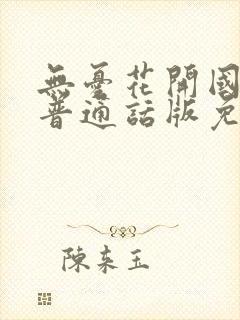 無憂花開國
普通話版免
陳來玉